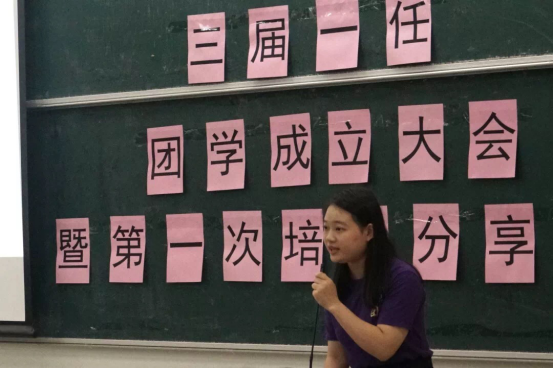 三届一任
团学成立大会
暨第一次培分享